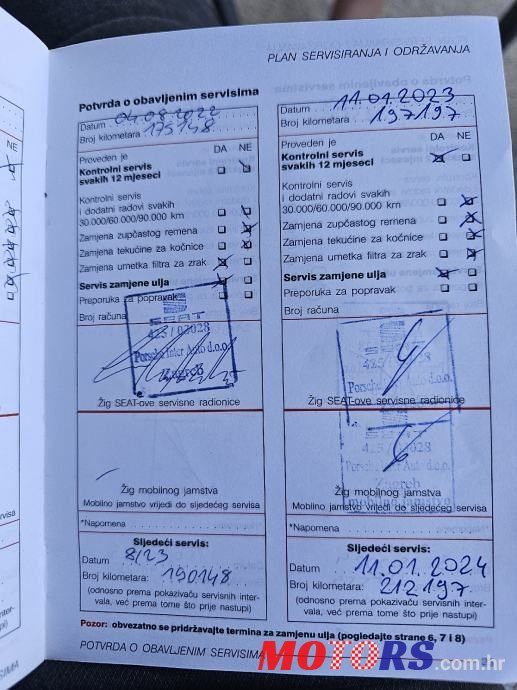 PLAN SERVISIRANJA I ODRŽAVANJA
NE
Potvrda o obavljenim servisima
Datum 04.08.2022
Broj kilometara 175148
Proveden je DA NE
Kontrolni servis
svakih 12 mjeseci
Kontrolni servis
i dodatni radovi svakih
30.000/60.000/90.000 km
Zamjena zupčastog remena
Zamjena tekućine za kočnice
Zamjena umetka filtra za zrak
Servis zamjene ulja
Preporuka za popravak
Broj računa
SEAT
425 / 03028
Porsche Inter Auto d.o.o.
Zagreb
Žig SEAT-ove servisne radionice
Žig mobilnog jamstva
Mobilno jamstvo vrijedi do sljedećeg servisa
*Napomena
Sljedeći servis:
Datum 8/23
Broj kilometara: 190148
(odnosno prema pokazivaču servisnih inter-
vala, već prema tome što prije nastupi)
Datum 11.01.2023
Broj kilometara 197197
Proveden je DA NE
Kontrolni servis
svakih 12 mjeseci
Kontrolni servis
i dodatni radovi svakih
30.000/60.000/90.000 km
Zamjena zupčastog remena
Zamjena tekućine za kočnice
Zamjena umetka filtra za zrak
Servis zamjene ulja
Preporuka za popravak
Broj računa
SEAT
425 / 03028
Porsche Inter Auto d.o.o.
Žig SEAT-ove servisne radionice
SEAT
425 / 03028
Porsche Inter Auto d.o.o.
Zagreb
mobilno jamstvo
Žig mobilnog jamstva
Mobilno jamstvo vrijedi do sljedećeg servisa
*Napomena
Sljedeći servis:
Datum 11.01.2024
Broj kilometara: 212197
(odnosno prema pokazivaču servisnih inter-
vala, već prema tome što prije nastupi)
Pozor: obvezatno se pridržavajte termina za zamjenu ulja (pogledajte strane 6, 7 i 8)
POTVRDA O OBAVLJENIM SERVISIMA
MOTORS.com.hr